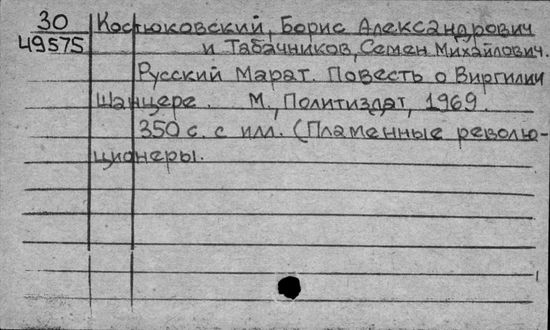 30 Костюковский, Борис Александрович
49575 и Табачников, Семен Михайлович.
Русский Марат. Повесть о Виргилии
Шанцере. М., Политиздат, 1969.
350 с. с илл. (Пламенные револю-
ционеры.